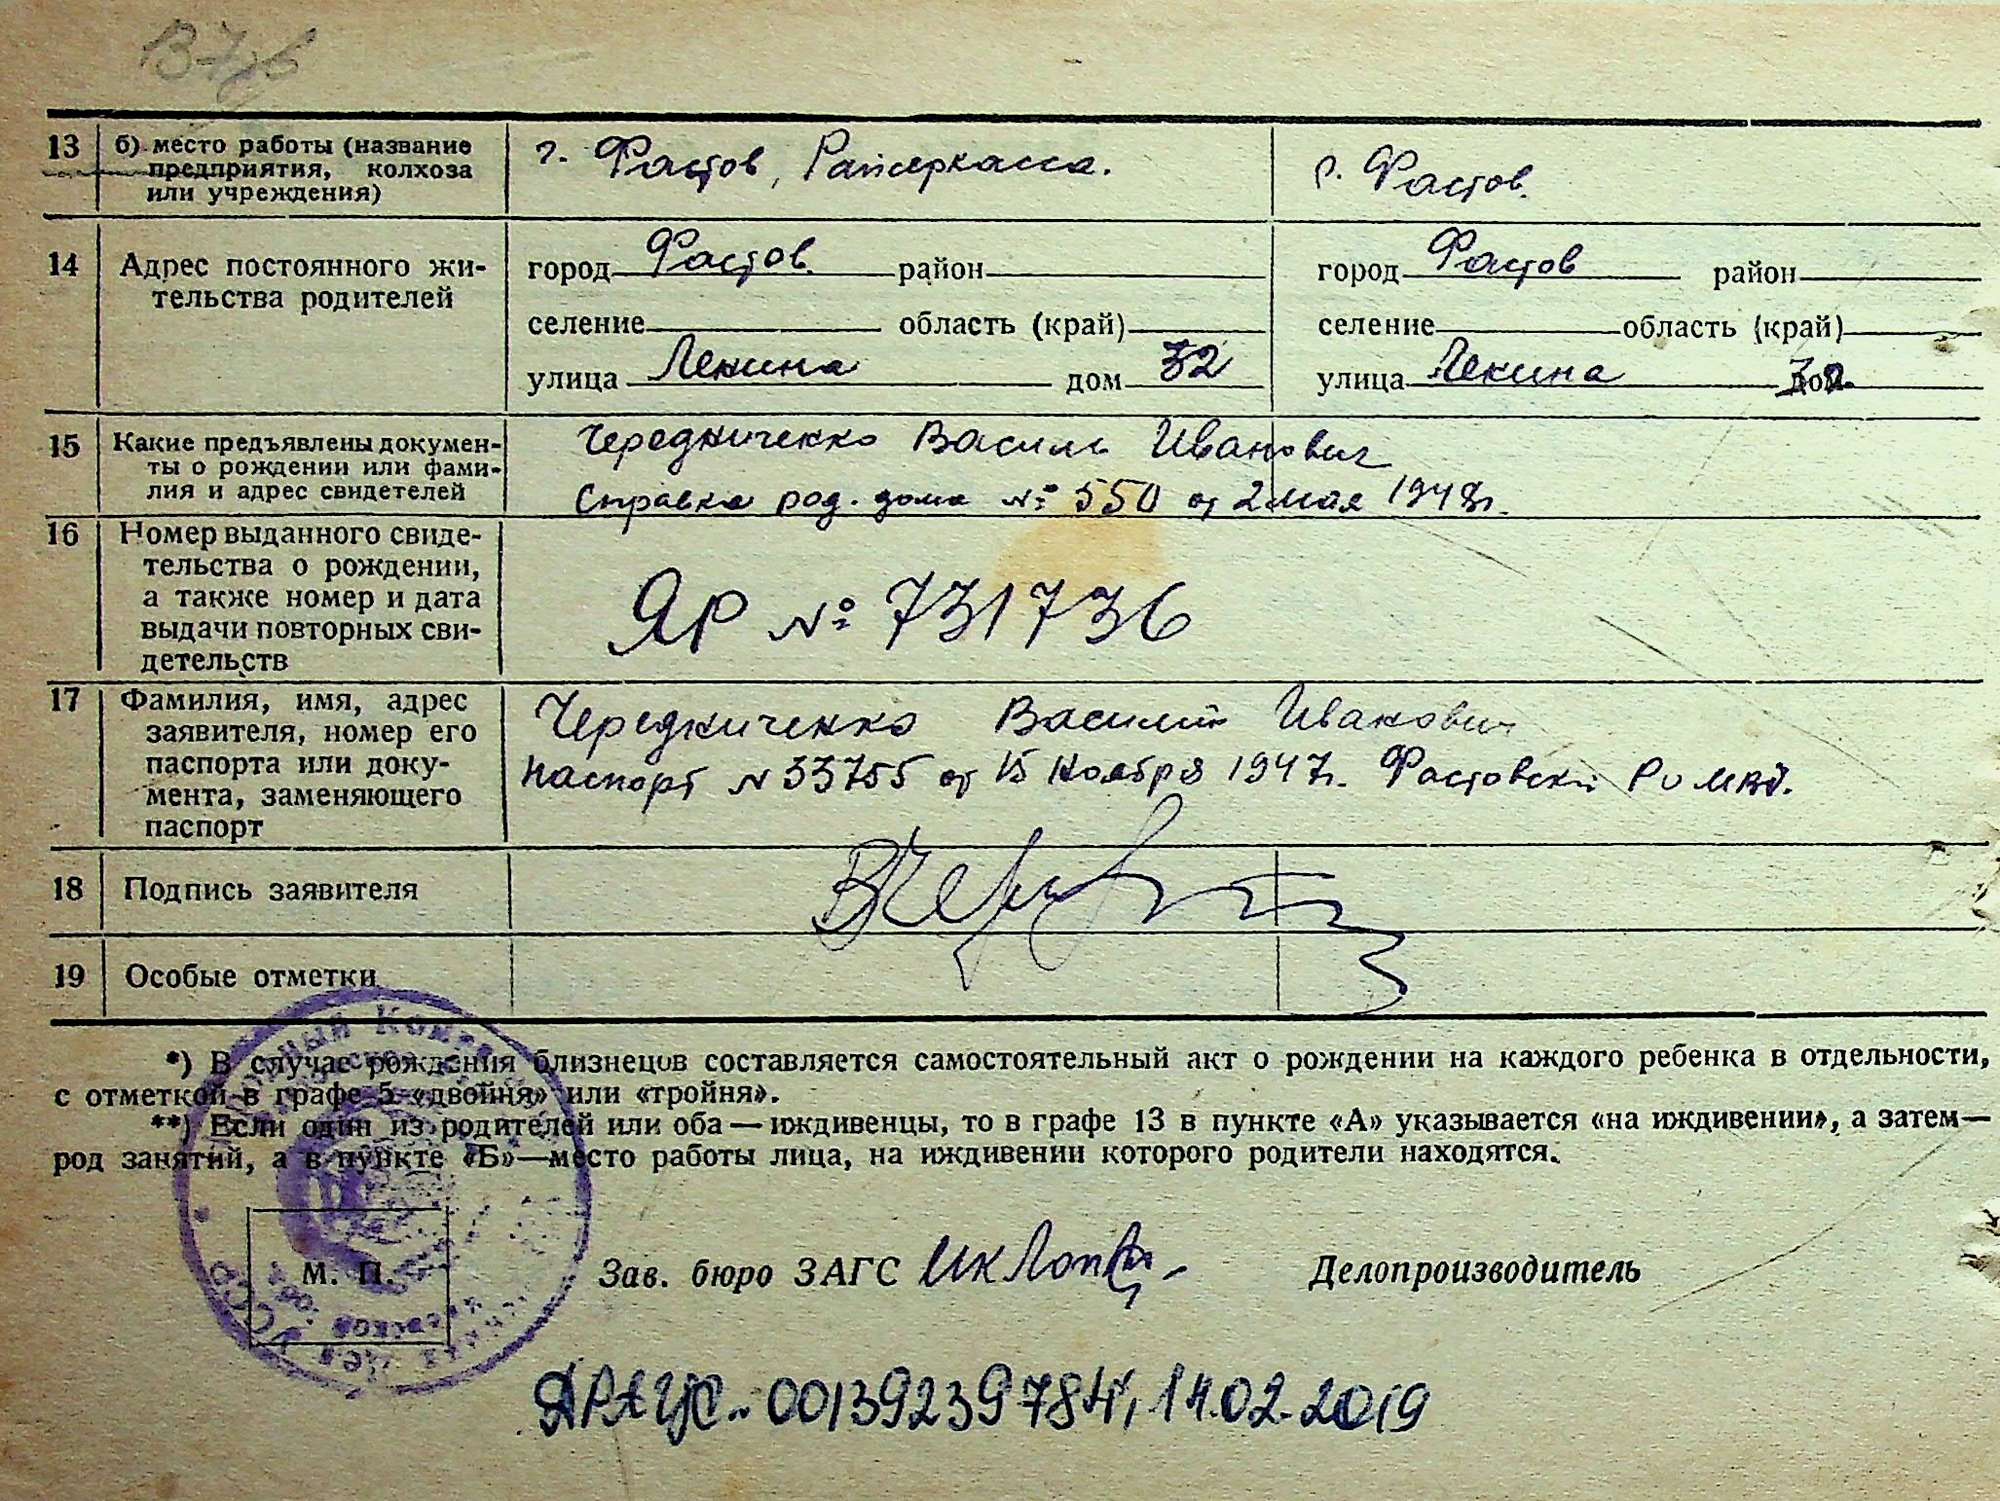 13 б) место работы (название предприятия, колхоза или учреждения) г. Фастов, Райсеркасса. г. Фастов.
14 Адрес постоянного жительства родителей
город Фастов. район город Фастов район
селение область (край) селение область (край)
улица Ленина дом 32 улица Ленина дом
15 Какие предъявлены докумен-
ты о рождении или фами-
лия и адрес свидетелей
Чередниченко Василь Иванович
Справка род. дома № 550 от 2 мая 1948г.
16 Номер выданного свиде-
тельства о рождении,
а также номер и дата
выдачи повторных сви-
детельств
ЯР № 731736
17 Фамилия, имя, адрес
заявителя, номер его
паспорта или доку-
мента, заменяющего
паспорт
Чередниченко Василий Иванович
Паспорт N 33755 от 15 Ноября 1947г. Фастовский РО МВД.
18 Подпись заявителя
19 Особые отметки
*) В случае рождения близнецов составляется самостоятельный акт о рождении на каждого ребенка в отдельности,
с отметкой в графе 5 «двойня» или «тройня».
**) Если один из родителей или оба—иждивенцы, то в графе 13 в пункте «А» указывается «на иждивении», а затем—
род занятий, а в пункте «Б»—место работы лица, на иждивении которого родители находятся.
М. П.
Зав. бюро ЗАГС Делопроизводитель
УССР
ДРАЦС. 00139239784, 14.02.2019